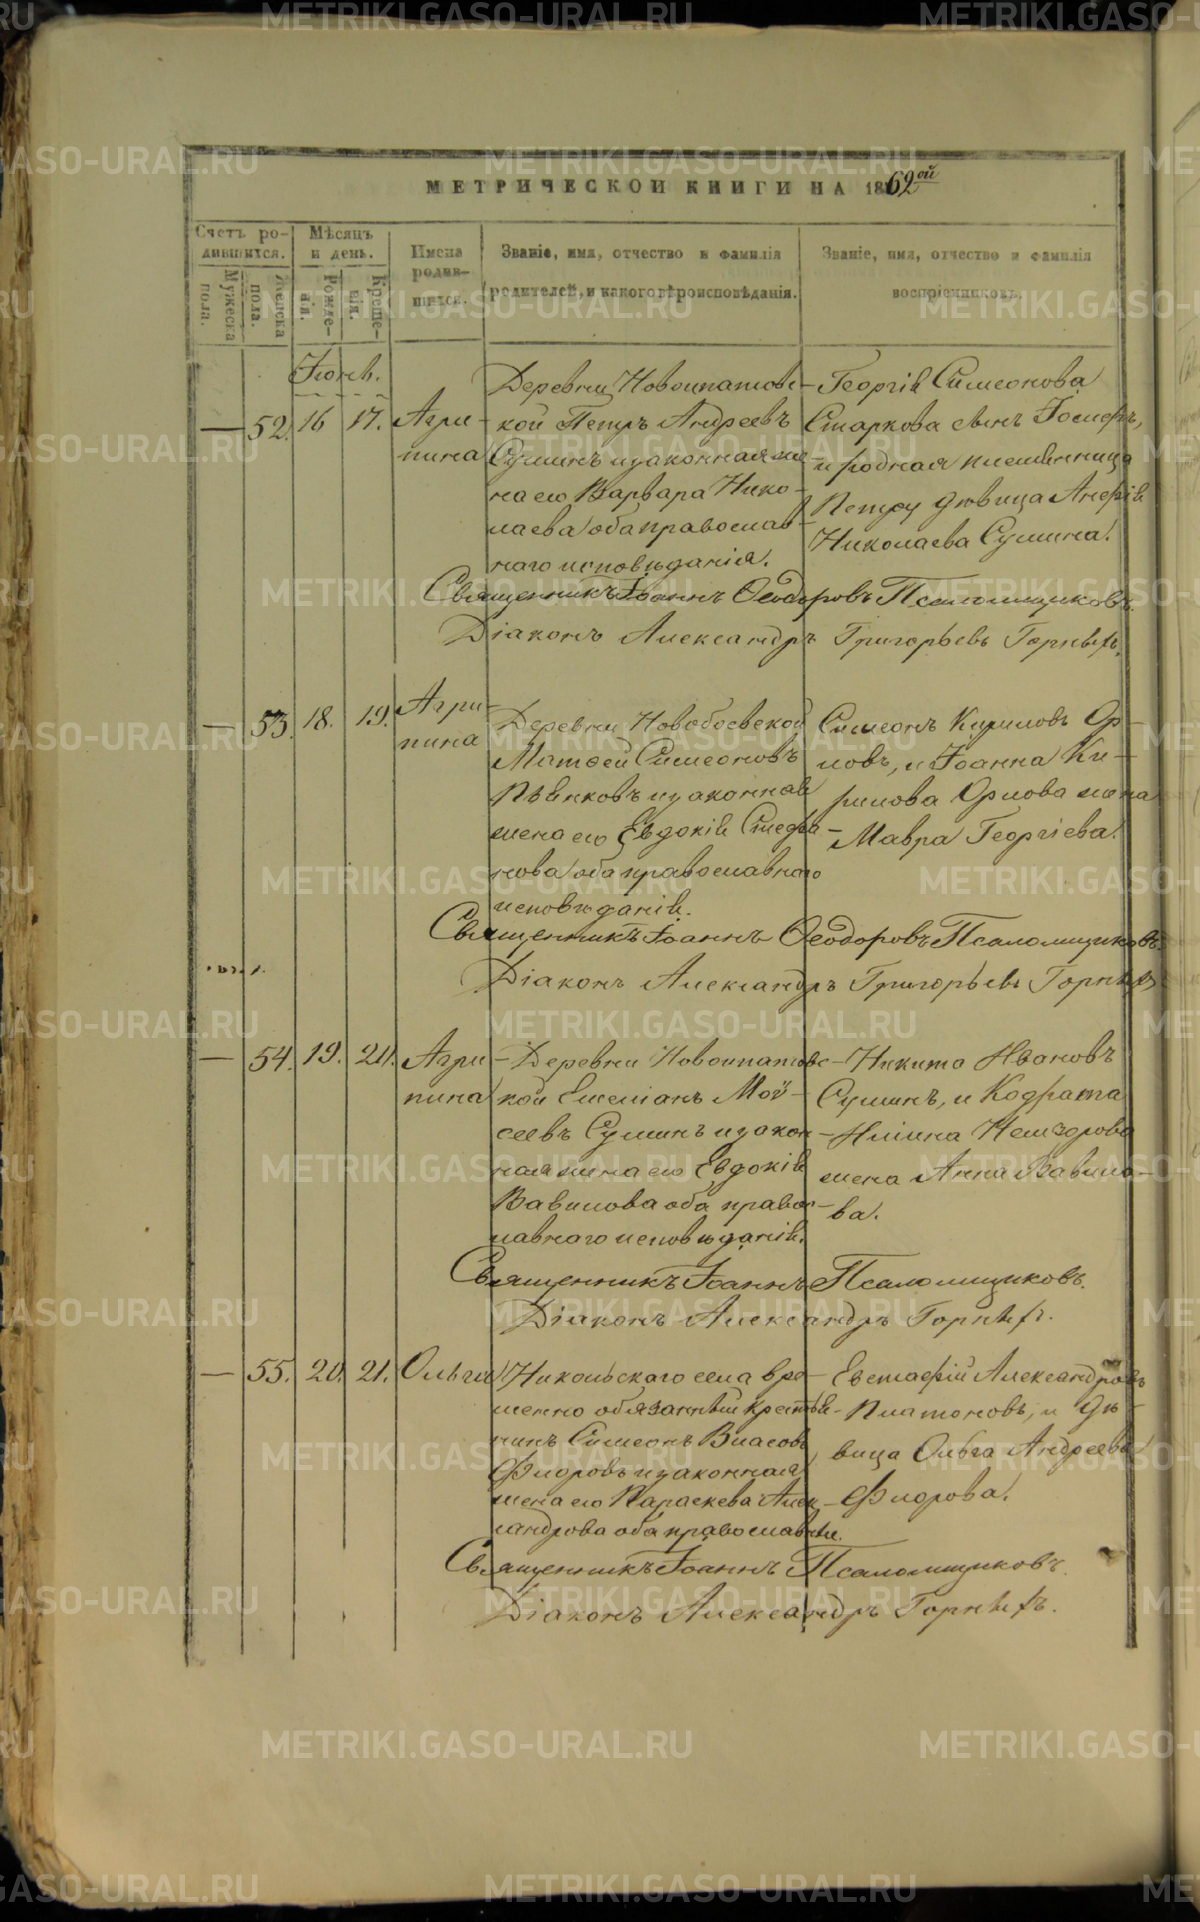 МЕТРИЧЕСКОЙ КНИГИ НА 1862ой
Счетъ родившихся.
Мѣсяцъ и день.
Имена родившихся.
Званіе, имя, отчество и фамилія родителей, и какого вѣроисповѣданія.
Званіе, имя, отчество и фамилія воспріемниковъ.
Мужеска пола.
Женска пола.
Рожденія.
Крещенія.
Іюнь.
— 52. 16 17. Агри-
пина
Деревни Новоипатовс-
кой Петръ Андреевъ
Сушинъ и законная же-
на его Варвара Нико-
лаева оба православ-
наго исповѣданія.
Георгія Симеонова
Старкова сынъ Іосифъ,
и родная племянница
Петру дѣвица Анфія
Николаева Сушина.
Священникъ Іоаннъ Ѳеодоровъ Псаломщиковъ.
Діаконъ Александръ Григорьевъ Горныхъ.
— 53. 18. 19. Агри-
пина
Деревни Новобоевской
Матѳей Симеоновъ
Пьянковъ и законная
жена его Евдокія Стефа-
нова оба православнаго
исповѣданія.
Симеонъ Кириловъ Ор-
ловъ, и Іоанна Ки-
рилова Орлова жена
Мавра Георгіева.
Священникъ Іоаннъ Ѳеодоровъ Псаломщиковъ.
Діаконъ Александръ Григорьевъ Горныхъ
— 54. 19. 20. Агри-
пина
Деревни Новоипатовс-
кой Емеліанъ Мой-
сеевъ Сушинъ и закон-
ная жена его Евдокія
Вавилова оба правос-
лавнаго исповѣданія.
Никита Ивановъ
Сушинъ, и Кодрата
Ильина
жена Анна Вавило-
ва.
Священникъ Іоаннъ Псаломщиковъ.
Діаконъ Александръ Горныхъ.
— 55. 20. 21. Ольга
Никольскаго села вре-
менно обязанный крестья-
нинъ Симеонъ Власовъ
Флоровъ и законная
жена его Параскева Алек-
сандрова оба православные.
Евстафій Александровъ
Платоновъ, и дѣ-
вица Ольга Андреева
Флорова.
Священникъ Іоаннъ Псаломщиковъ.
Діаконъ Александръ Горныхъ.
METRIKI.GASO-URAL.RU